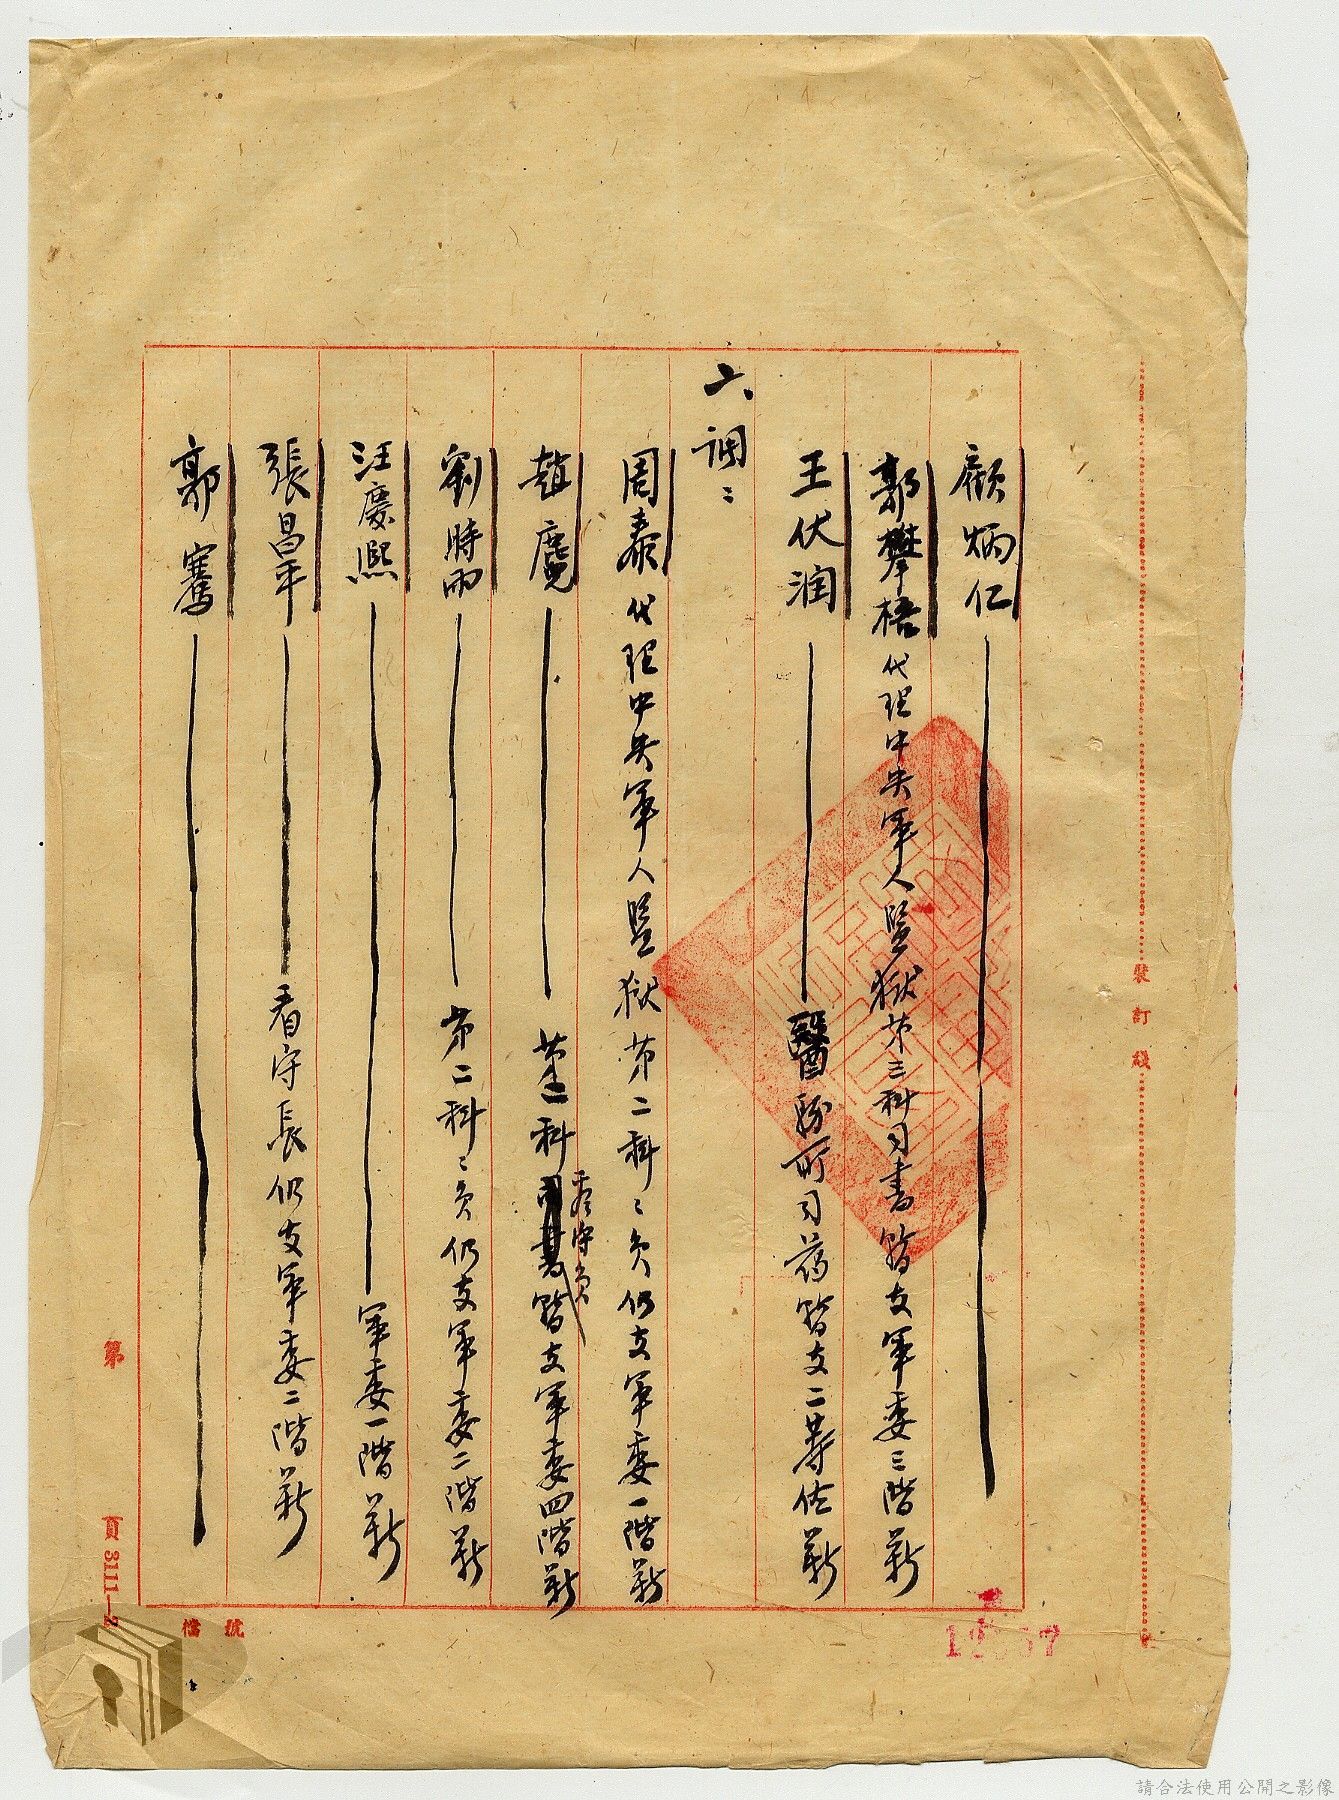 顧炳仁
郭攀梧代理中央軍人監獄第三科司書暫支軍委三階薪
王伏润 醫務所司葯暫支二等佐薪
六、调:
周泰代理中央軍人監獄第二科科員仍支軍委一階薪
趙 第一科看守員暫支軍委四階薪
劉時雨 第二科科員仍支軍委二階薪
汪慶熙 軍委一階薪
張昌平 看守長仍支軍委二階薪
郭騫
裝訂線
第
頁 3111—2
檔號
請合法使用公開之影像